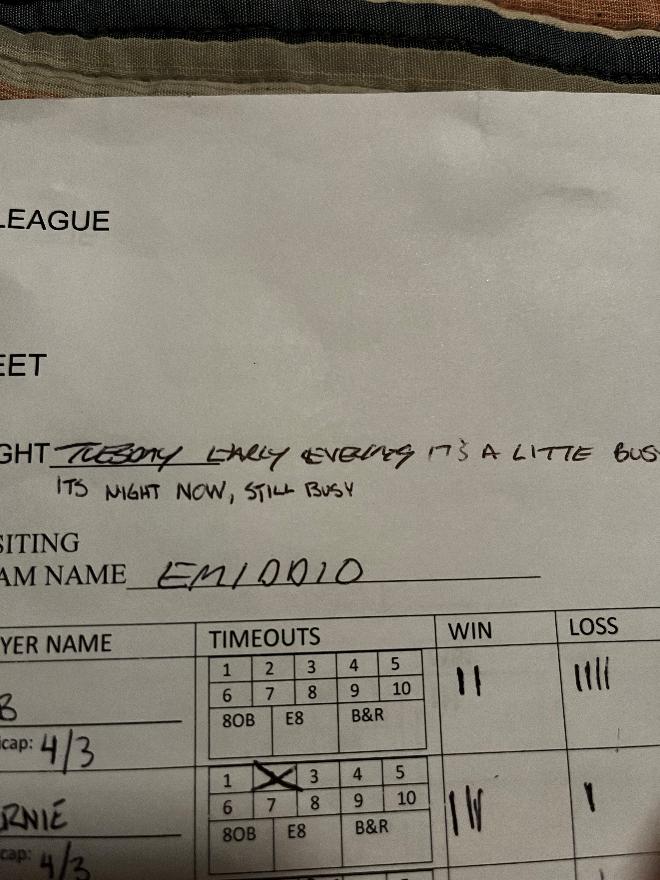 LEAGUE
EET
GHT TUESDAY EARLY EVENING IT'S A LITTE BUS
ITS NIGHT NOW, STILL BUSY
SITING
AM NAME EMIDDIO
YER NAME TIMEOUTS WIN LOSS
1 2 3 4 5
6 7 8 9 10
B 8OB E8 B&R || ||||
cap: 4/3
1 3 4 5
6 7 8 9 10
RNIE 8OB E8 B&R ||| |
cap: 4/3